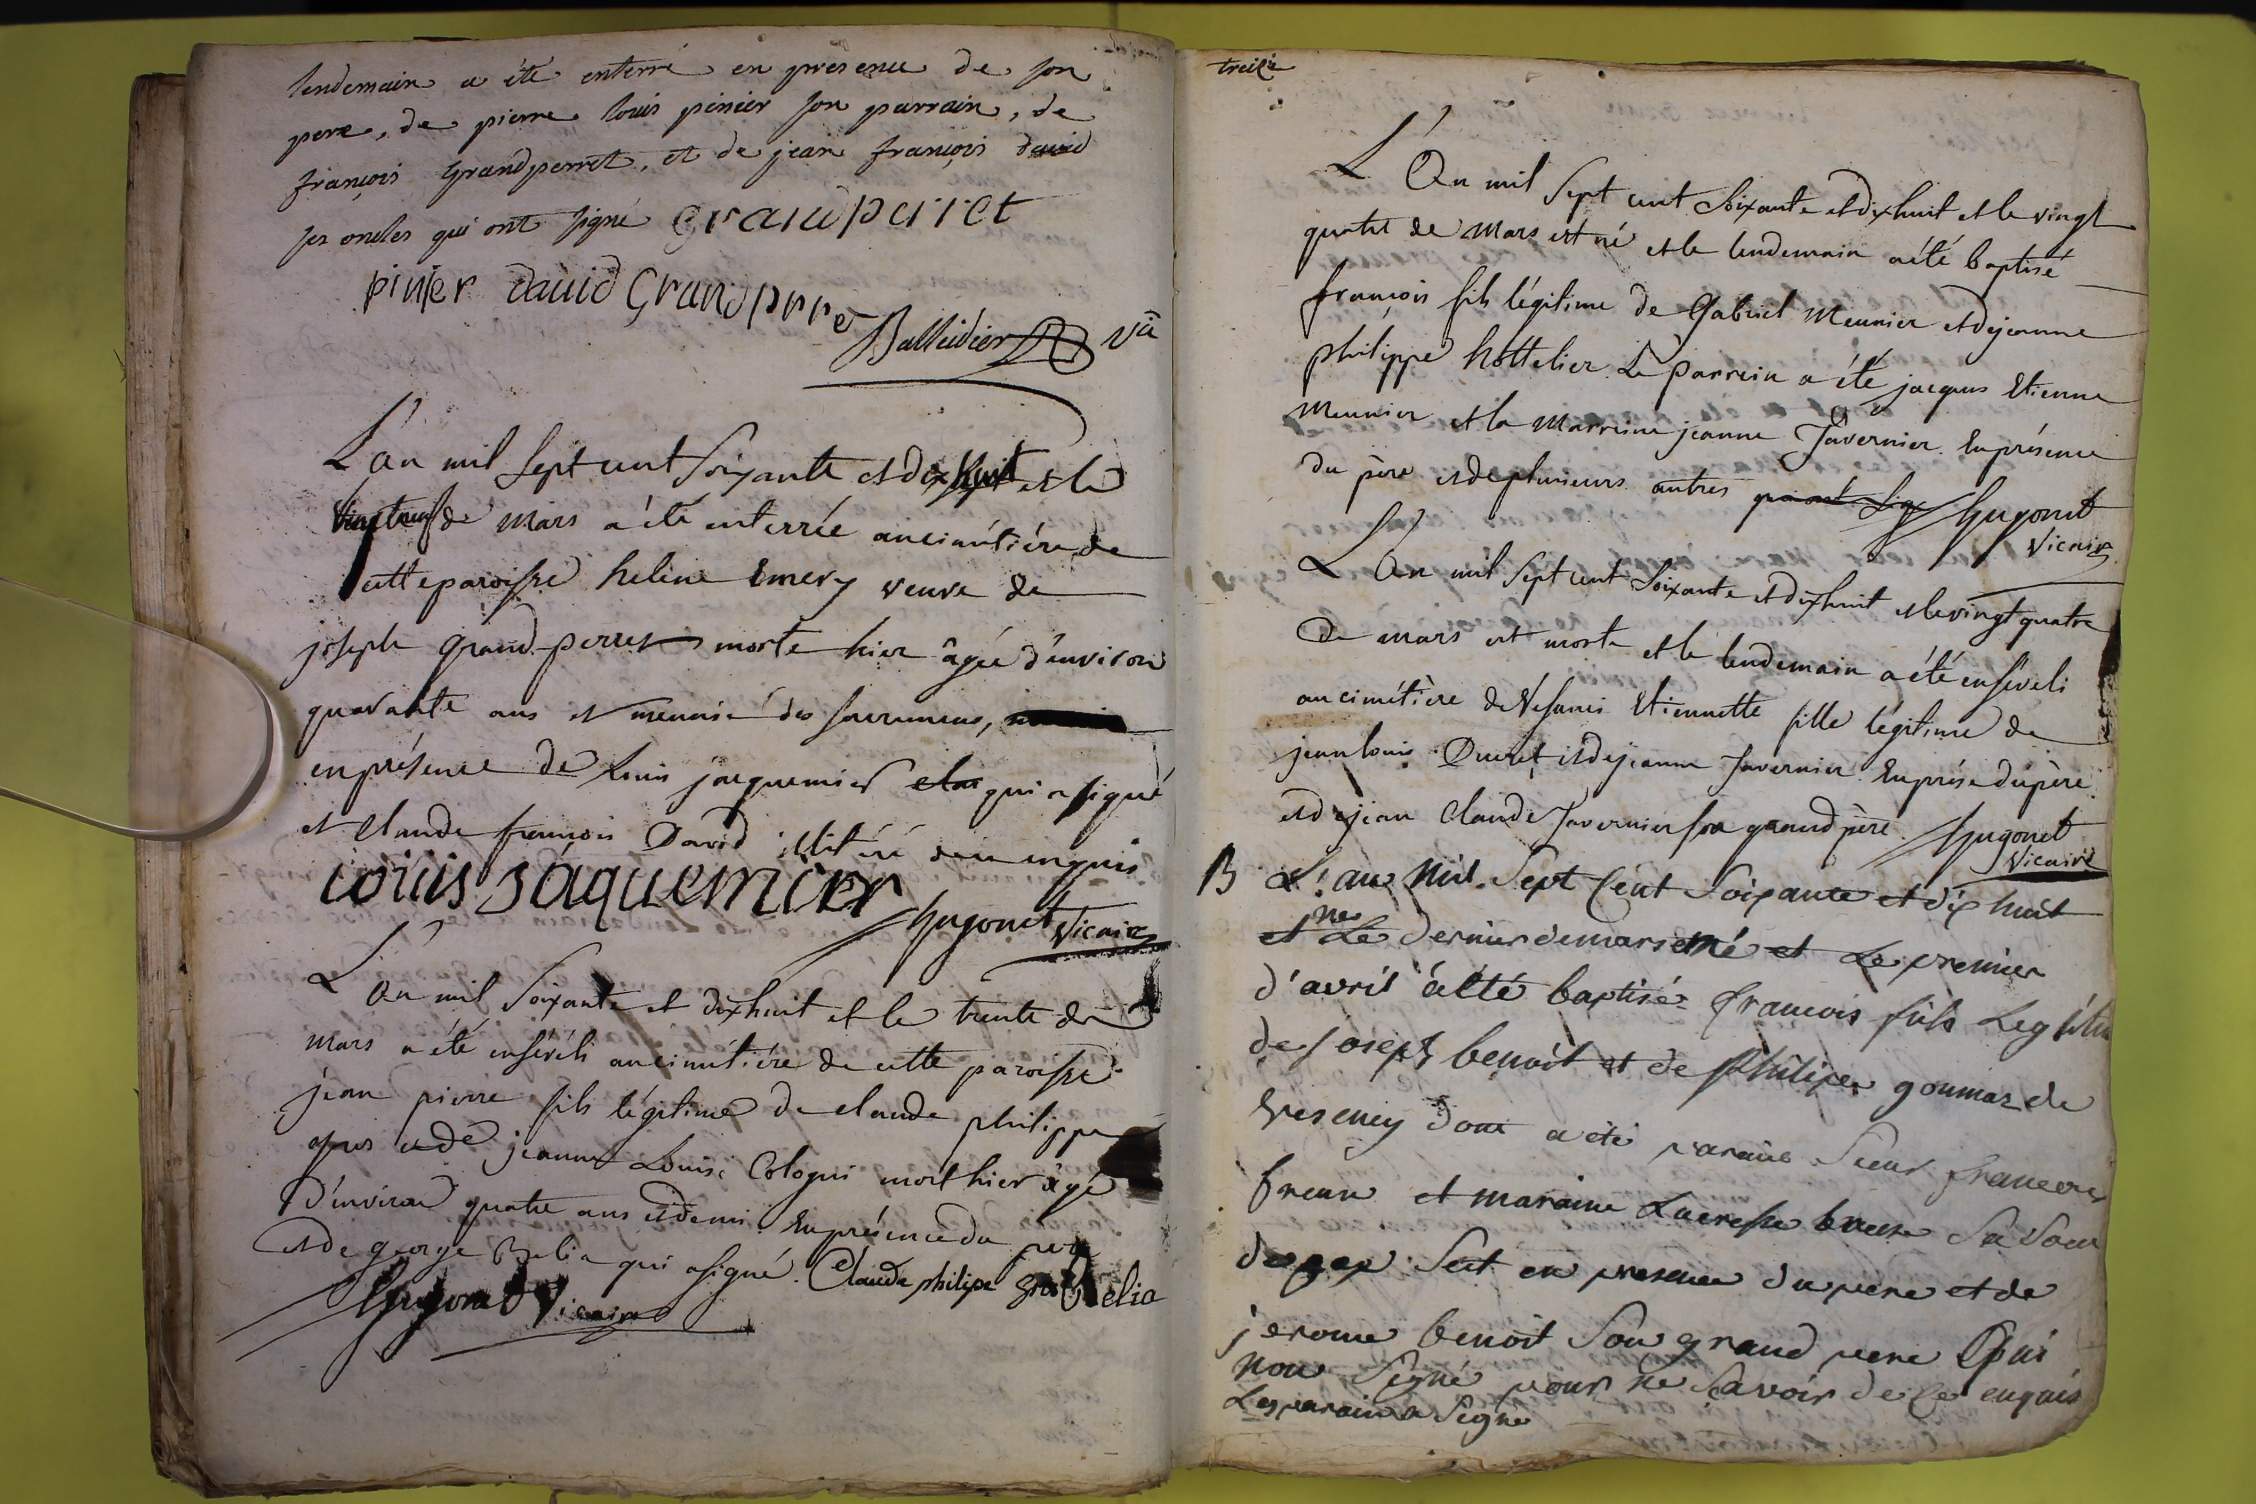 lendemain a été enterré en presence de son
pere, de pierre louis pinier son parrain, de
françois Grandperret, et de jean françois david
ses oncles qui ont signé Grandperret
pinier david Grandperret
Balleidier vic
L'an mil sept cent soixante et dix huit et le
vingt neuf de mars a été enterrée au cimétiére de
cette paroisse heline Emery veuve de
joseph Grand-perret morte hier âgée d'environ
quarante ans et munie des sacremens,
en présence de Louis jacquemier qui a signé
et Claude françois David illitéré de ce enquis
Louis Jaquemier
Hugonet Vicaire
L'An mil soixante et dixhuit et le trente de
mars a été enséveli au cimétiére de cette paroisse
jean pierre fils légitime de claude philippe
gros et de jeanne Louise Cologni mort hier âgé
d'environ quatre ans et demi. En présence du pere
et de george Belia qui a signé. Claude philipe gros Belia
Hugonet Vicaire
treizie
L'An mil sept cent soixante et dixhuit et le vingt
quatre de mars est né et le lendemain a été baptisé
françois fils légitime de Gabriel Meunier et de jeanne
philippe hottelier. Le parrein a été jacques Etienne
Meunier et la marreine jeanne Tavernier. En présence
du père et de plusieurs autres qui ont sig Hugonet
Vicaire
L'An mil sept cent soixante et dixhuit et le vingt quatre
de mars est morte et le lendemain a été enséveli
au cimétière de Vesancy Etiennette fille légitime de
jean louis Ducret et de jeanne Tavernier. En prése du père
et de jean Claude Tavernier son grand père. Hugonet
Vicaire
B L'an mil sept Cent soixante et dix huit
et Le dernier de mars est né et Le premier
d'avril a été baptisé francois fils Legitim
de Joseph benoit et de philipe goumaz de
vesency dont a été parain Sieur francois
breur et maraine Lucresse breur Sa Soeur
de gex Set en presence du pere et de
jerome benoit Son grand pere Qui
non Signé pour ne Savoir de Ce enquis
Le parain a Signe